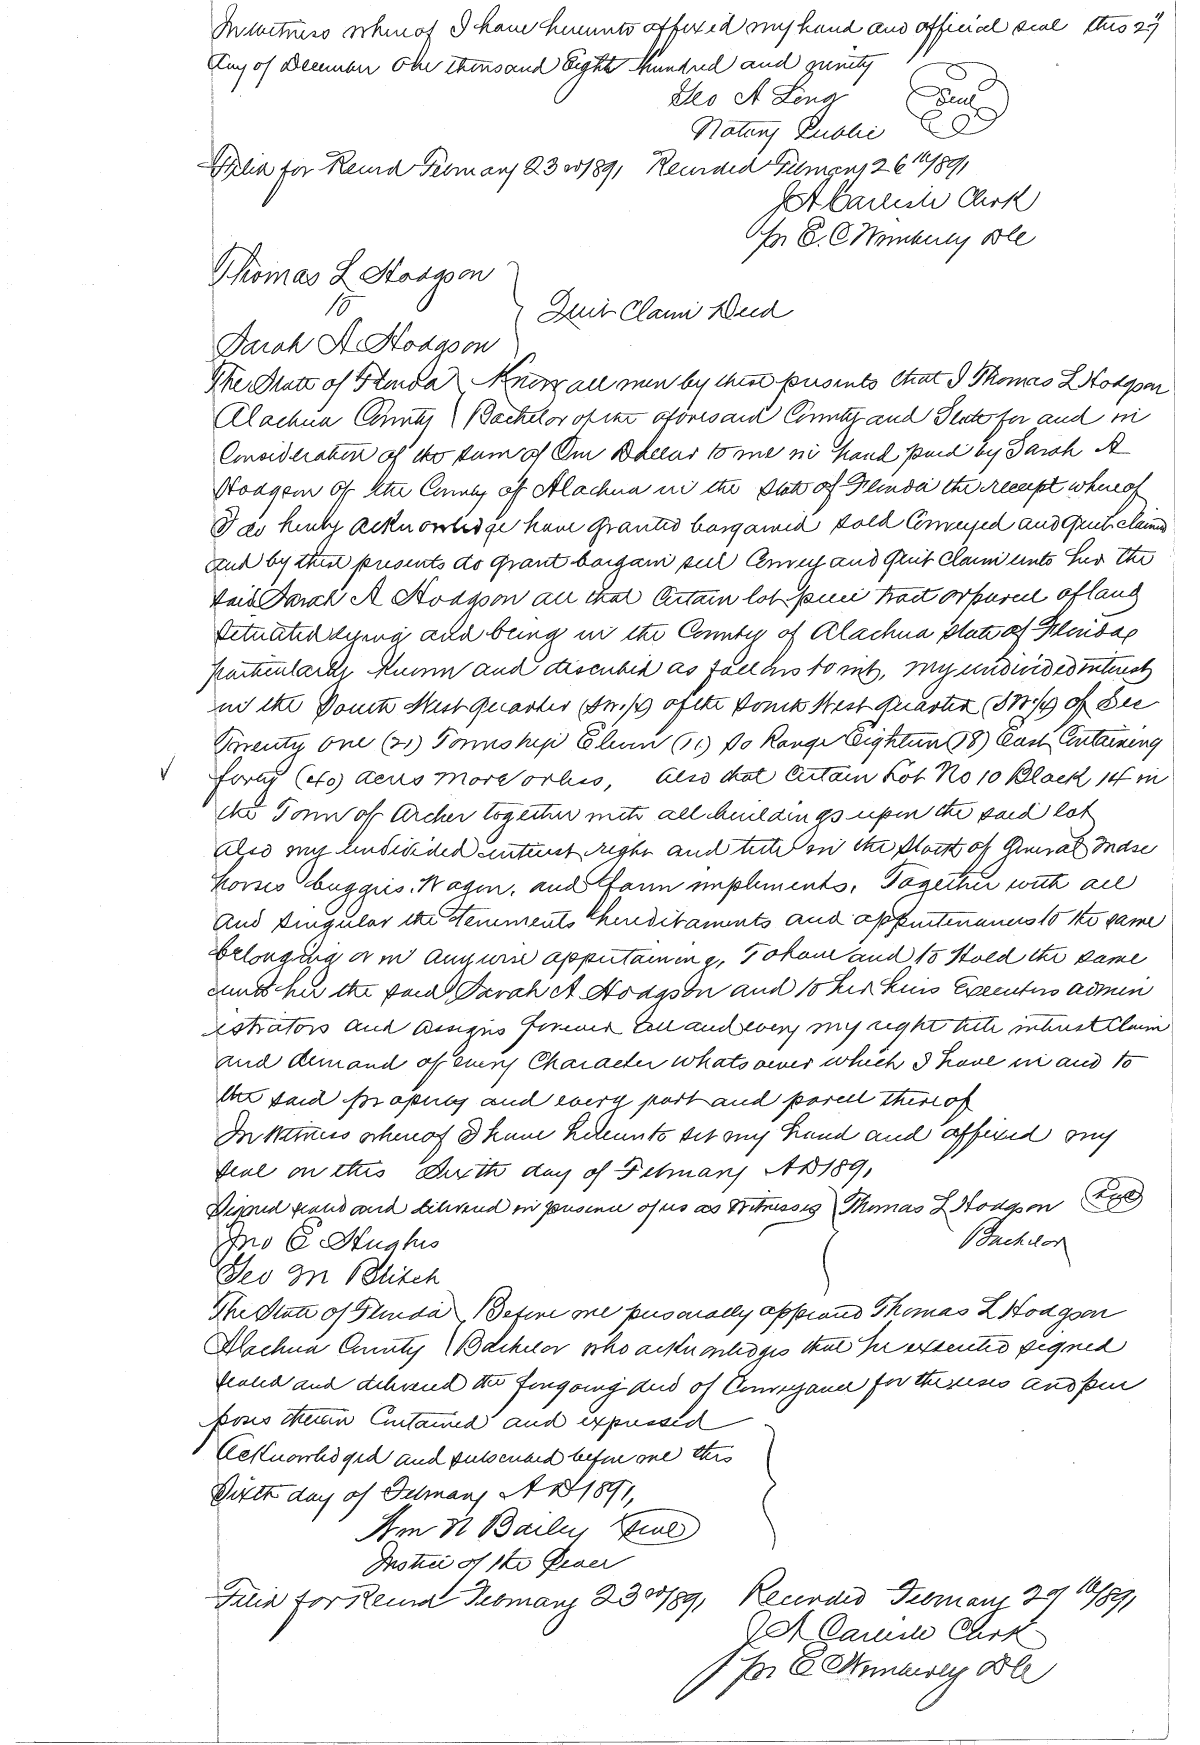 In witness whereof I have hereunto affixed my hand and official seal this 27"
day of December One thousand Eight hundred and ninety
Geo A Long Seal
Notary Public
Filed for Record February 23rd 1891 Recorded February 26th 1891
J A Carlisle Clerk
pr E. C Wimberly DC
Thomas L Hodgson
to
Quit Claim Deed
Sarah A Hodgson
The State of Florida Know all men by these presents that I Thomas L Hodgson
Alachua County Bachelor of the aforesaid County and State for and in
Consideration of the sum of One Dollar to me in hand paid by Sarah A
Hodgson of the County of Alachua in the State of Florida the receipt whereof
I do hereby acknowledge have granted bargained sold Conveyed and Quit claimed
and by these presents do grant bargain sell Convey and Quit Claim unto her the
said Sarah A Hodgson all that Certain lot piece tract or parcel of land
situated lying and being in the County of Alachua State of Florida
particularly known and described as follows to wit, my undivided interest
in the South West Quarter (SW.¼) of the South West Quarter (SW¼) of Sec
Twenty One (21) Township Eleven (11) So Range Eighteen (18) East Containing
forty (40) acres more or less, also that Certain Lot No 10 Block 14 in
the Town of Archer together with all buildings upon the said lot
also my undivided interest, right and title in the Stock of General Mdse
horses buggies, Wagon, and farm implements, Together with all
and singular the tenements hereditaments and appurtenances to the same
belonging or in anywise appertaining, To have and to Hold the same
unto her the said Sarah A Hodgson and to her heirs Executors admin
istrators and assigns forever all and every my right title interest Claim
and demand of every Character whatsoever which I have in and to
the said property and every part and parcell thereof
In Witness whereof I have hereunto set my hand and affixed my
seal on this Sixth day of February AD 1891
Signed sealed and delivered in presence of us as Witnesses Thomas L Hodgson Seal
Jno E Hughes Bachelor
Geo M Blitch
The State of Florida Before me personally appeared Thomas L Hodgson
Alachua County Bachelor who acknowledges that he executed signed
sealed and delivered the foregoing deed of Conveyance for the uses and pur
poses therein Contained and expressed
Acknowledged and subscribed before me this
Sixth day of February AD 1891,
Wm N Bailey Seal
Justice of the Peace
Filed for Record February 23rd 1891 Recorded February 27th 1891
J A Carlisle Clerk
pr E C Wimberly DC